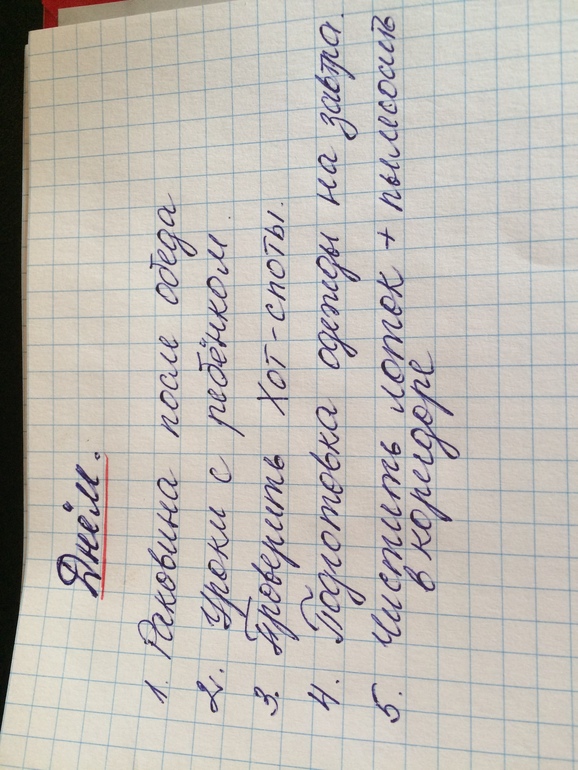 Днём.
1. Раковина после обеда
2. Уроки с ребёнком.
3. Проверить Хот-споты.
4. Подготовка одежды на завтра.
5. Чистить лоток + пылесосить
в коридоре